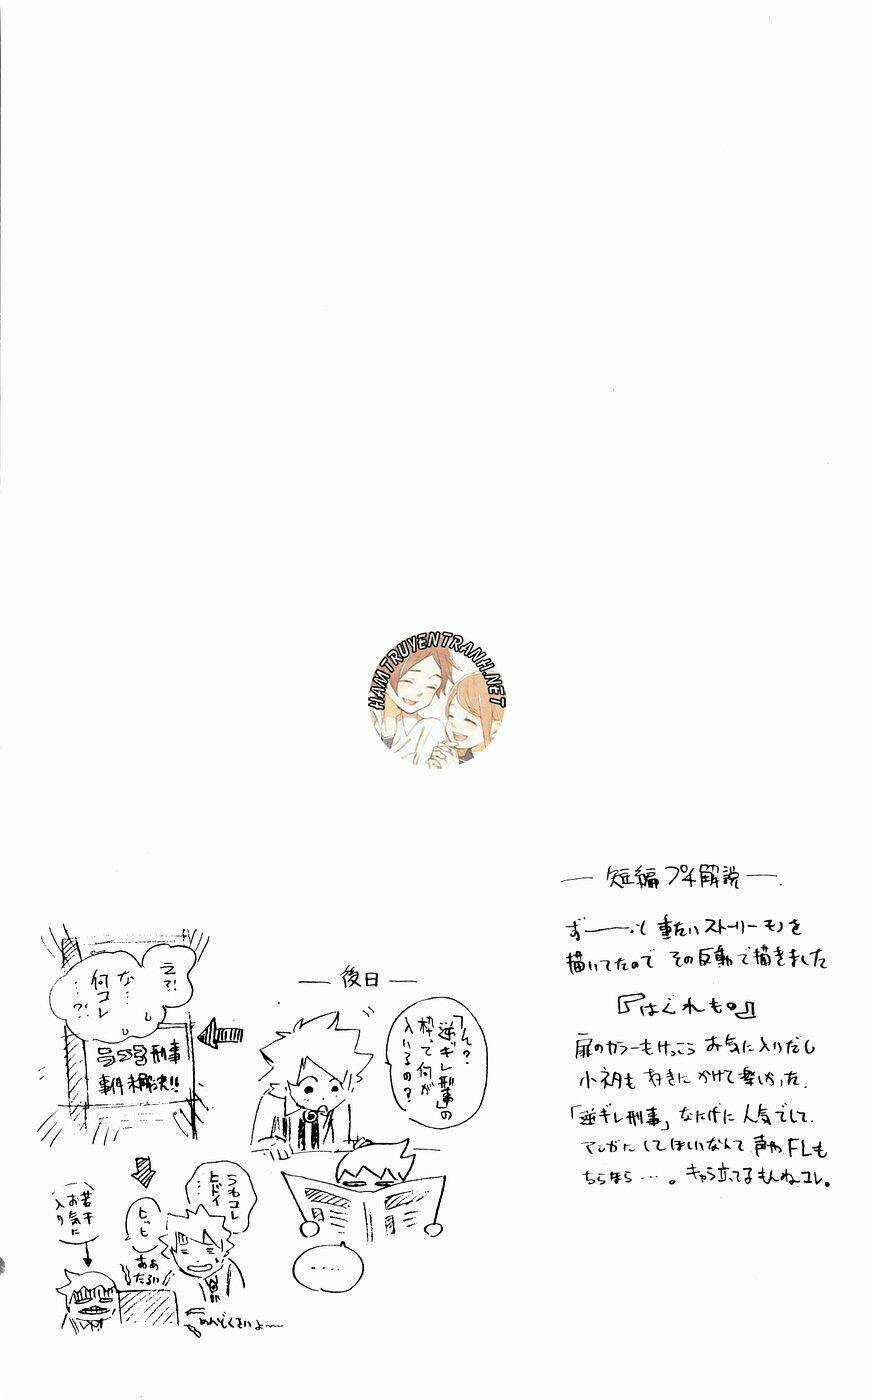 HAMTRUYENTRANH.NET
— 短編プチ解説 —
ずーーっと重たいストーリーモノを
描いてたので その反動で描きました
『はぐれも。』
扉のカラーもけっこうお気に入りだし
小ネタも好きにかけて楽しかった。
「逆ギレ刑事」なにげに人気でして
アンカにしてほしいなんて声やFLも
ちらほら…。キャラ立てるもんねコレ。
— 後日 —
「ん?
「逆ギレ刑事」の
枠って何が
入いるの?
.....
えっ!
な…
何コレ
…?!
刑事
事件未解決!!
うわコレ
ヒドイ…
ヒッヒ
ああ
だるい
若干
お気に
入り
めんどくさいよ〜